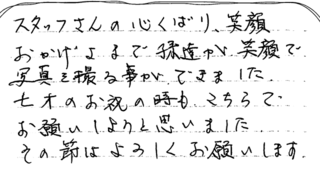 スタッフさんの心くばり、笑顔
おかげさまで孫達が笑顔で
写真を撮る事ができました.
七才のお祝の時も こちらで
お願いしようと思いました
その節はよろしくお願いします.